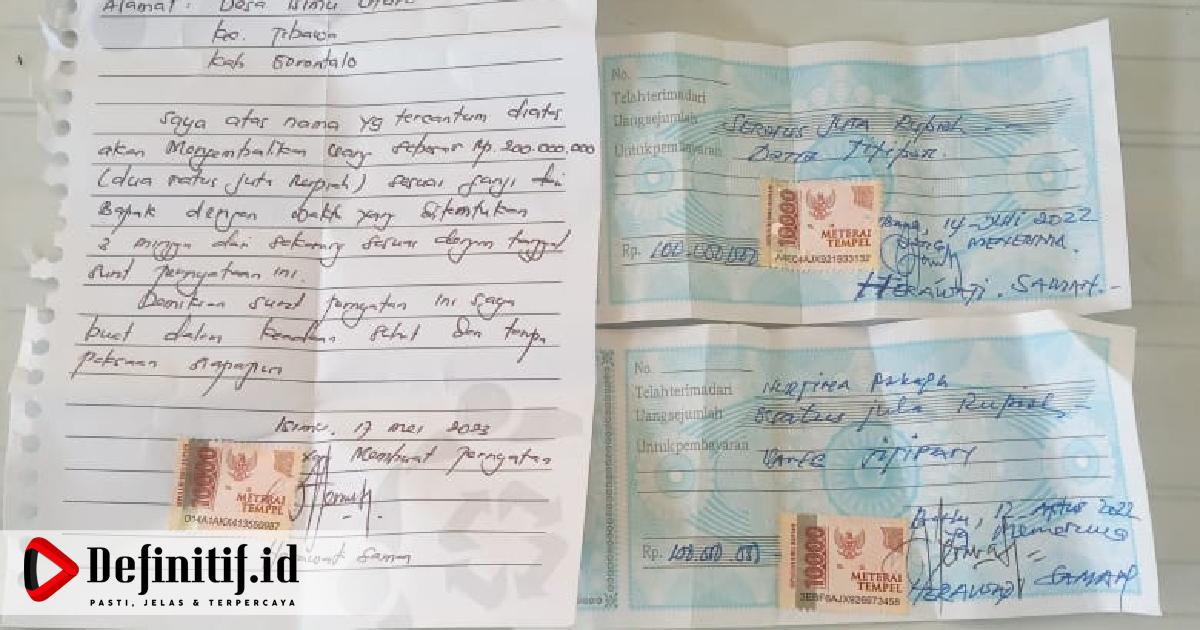 Alamat : Desa Isimu Utara
Kec. Tibawa
Kab Gorontalo
Saya atas nama yg tercantum diatas
akan Mengembalikan uang sebesar Rp. 200.000,000
(dua ratus juta Rupiah) sesuai janji
Bapak dengan waktu yang ditentukan
2 minggu dari sekarang sesuai dengan tanggal
surat pernyataan ini.
Demikian surat pernyataan ini saya
buat dalam keadaan sehat dan tanpa
paksaan siapapun
Isimu, 17 mei 2023
yg Membuat pernyataan
10000
METERAI
TEMPEL
Saman
Definitif.id
PASTI, JELAS & TERPERCAYA
No.
Telah terima dari
Uang sejumlah Seratus Juta Rupiah
Untuk pembayaran Titipan.
10000
METERAI
TEMPEL
14 - Juli 2022
Yang MENERIMA.
Rp. 100.000.000
HERAWATI. SAMAN.-
No.
Telah terima dari
Uang sejumlah Seratus juta Rupiah
Untuk pembayaran Titipan
10000
METERAI
TEMPEL
12 2022
Rp. 100.000.000
HERAWATI SAMAN